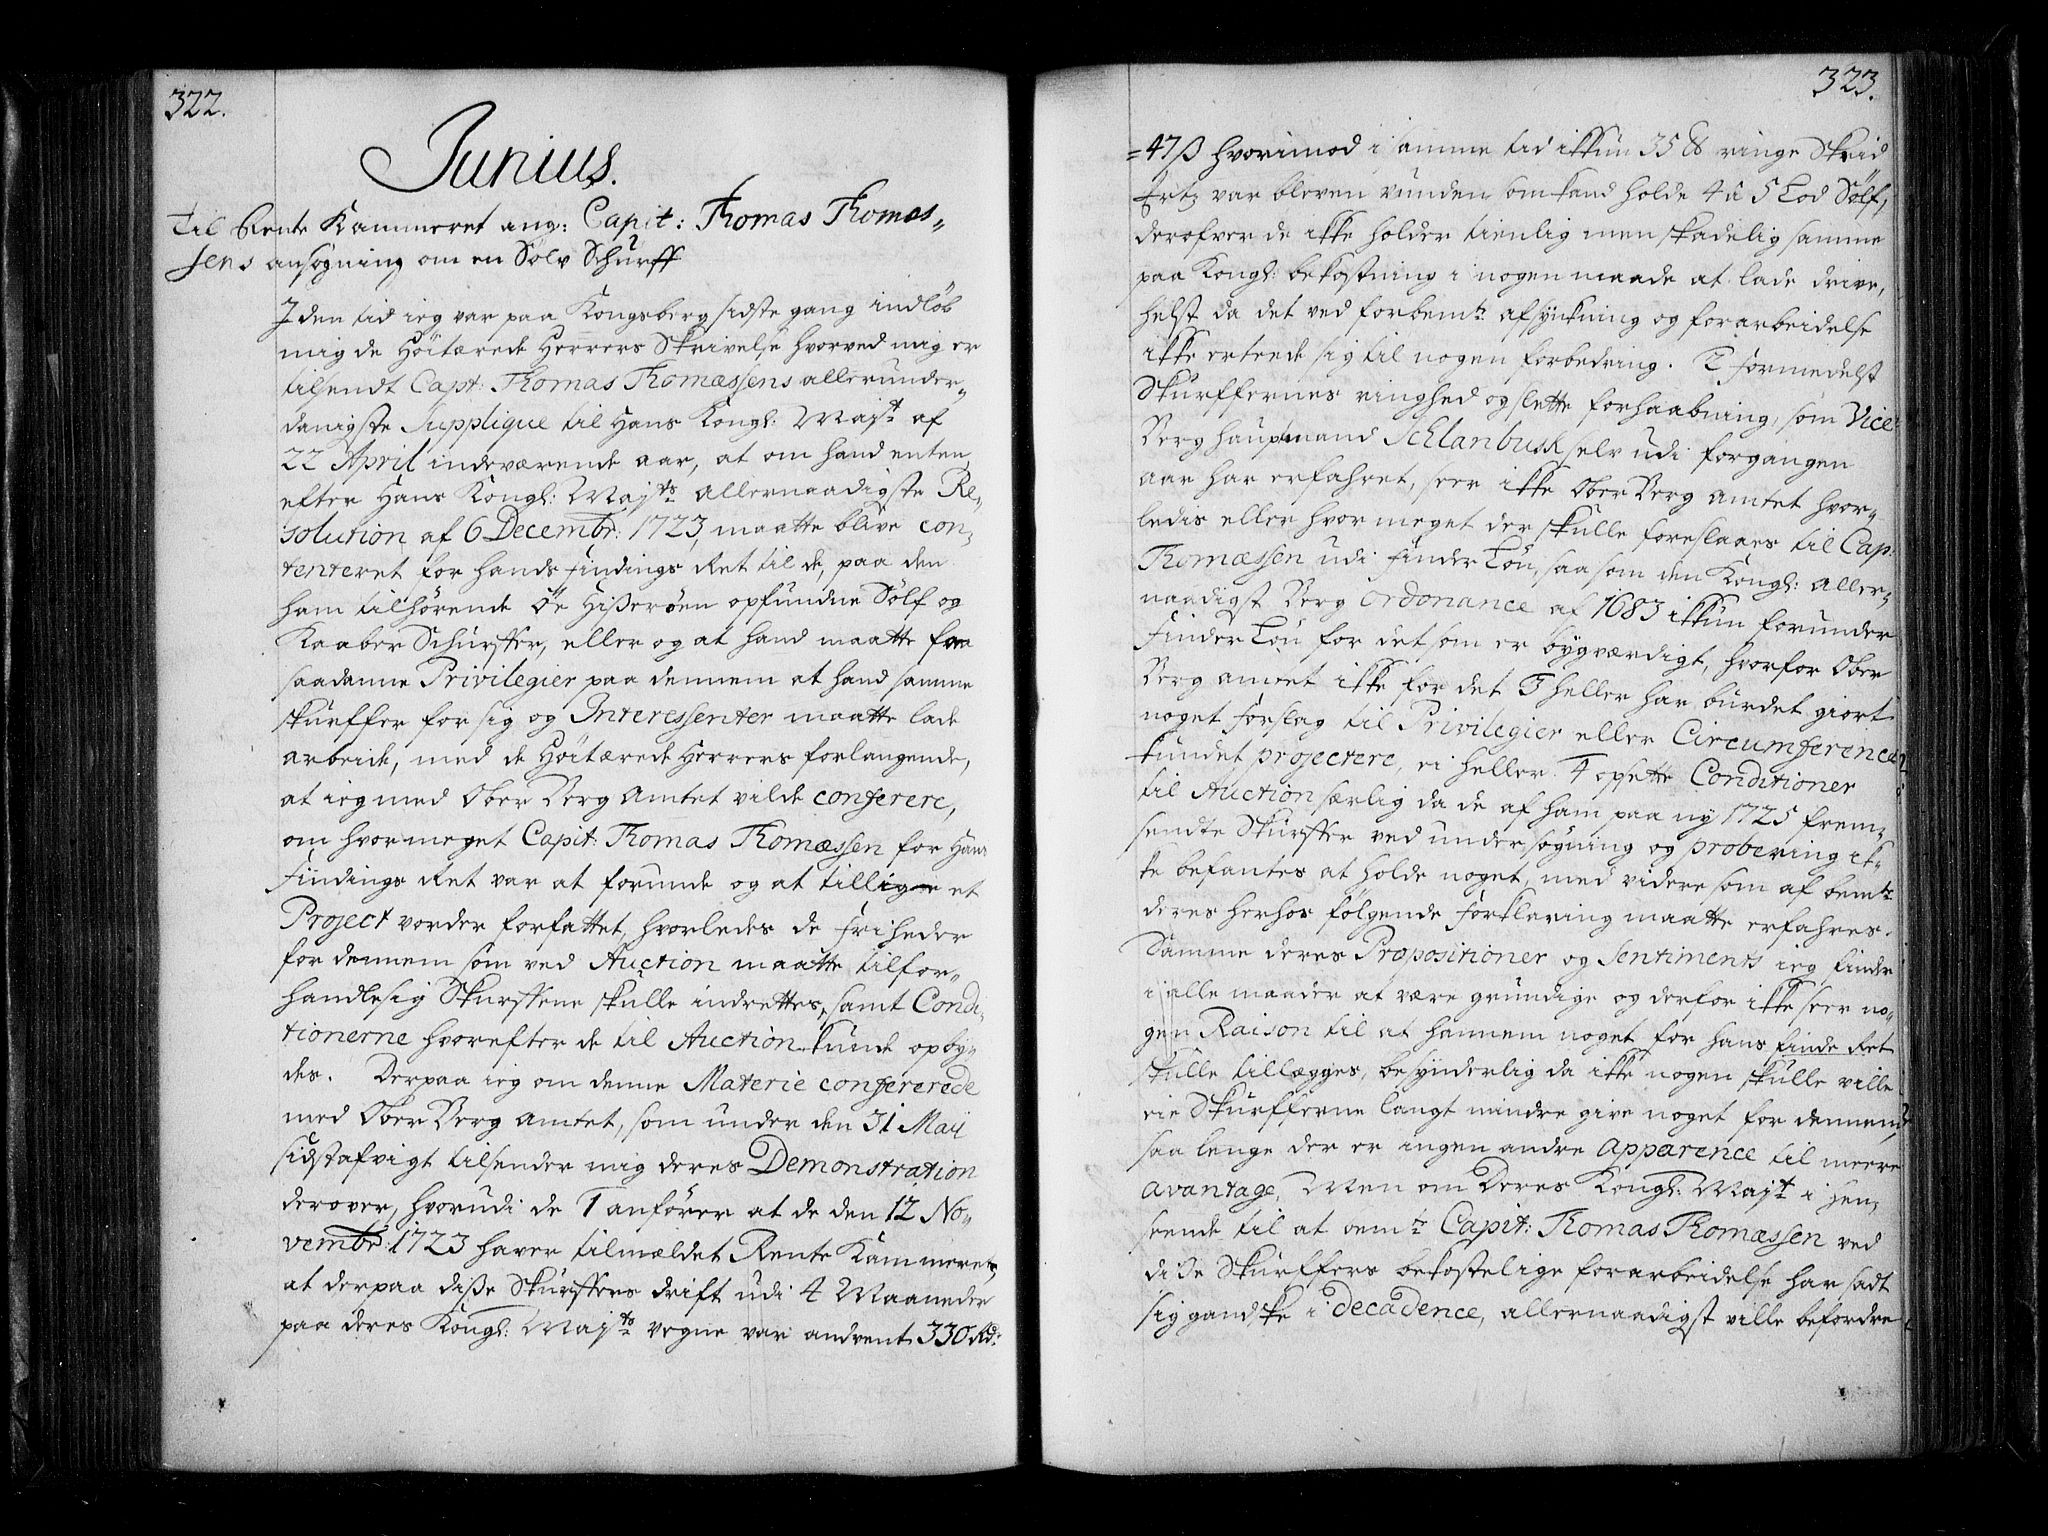 322.
Junius.
Til Rente Kammeret ang: Capit: Thomas Thomas-
sens ansøgning om en Sølv Schurff
I den tid ieg var paa Kongsberg sidste gang indløb
mig de Høitærede Herrers Skrivelse hvorved mig er
tilsendt Capt: Thomas Thomæssens allerunder-
danigste Supplique til Hans Kongl: Mayt af
22 April indeværende aar, at om hand enten
efter Hans Kongl: Mayts allernaadigste Re-
solution af 6 Decembr: 1723, maatte blive con-
tenteret for hands findings Ret til de, paa den
ham tilhørende Øe Hisserøen opfundne Sølf og
Kaaber Schurffer, eller og at hand maatte faa
saadanne Privilegier paa dennem at hand samme
skurffer for sig og Interessenter maatte lade
arbeide, med de Høitærede Herrers forlangende,
at ieg med Ober Berg Amtet vilde conferere,
om hvor meget Capit: Thomas Thomæssen for Hans
Findings Ret var at forunde og at tillige et
Project vorder forfattet, hvorledes de friheder
for dennem som ved Auction maatte tilfor-
handle sig Skurffene skulle indrettes, samt Condi-
tionerne hvorefter de til Auction kunde opby-
des. Derpaa ieg om denne Materie confererede
med Ober Berg Amtet, som under den 31 Maij
sidstafvigt tilsender mig deres Demonstration
derover, hvorudi de 1 anfører at de den 12 No-
vembr: 1723 haver tilmældet Rente Kammeret,
at derpaa disse Skurffers drift udi 4 Maaneder
paa deres Kongl: Mayts vegne var andvent 330 Rd:
323.
=47ß hvorimod i samme tid ikkun 35 ℔ ringe Skeid
Ertz var bleven vunden som kand holde 4 à 5 Lod Sølf,
derofver de ikke holder tienlig men skadelig samme
paa Kongl: bekostning i nogen maade at lade drive,
helst da det ved forbemte afsynkning og forarbeidelse
ikke erteede sig til nogen forbedring. 2 formedelst
Skurffernes ringhed og slette forhaabning, som Vice-
Berghauptmand Schlanbusk selv udi forgangen
aar har erfahret, seer ikke Ober Berg Amtet hvor-
ledis eller hvor meget der skulle foreslaaes til Cap:
Thomæssen udi finder Løn, saasom den Kongl: aller-
naadigst Berg Ordonance af 1683 ikkun forunder
Finder Løn for det som er bygværdigt, hvorfor Ober
Berg Amtet ikke for det 3 heller har burdet giort
noget forslag til Privilegier eller Circumference
kundet projectere, ei heller 4 opsette Conditioner
til Auction særlig da de af ham paa ny 1725 frem-
sendte Skurffer ved undersøgning og probering ik-
ke befantes at holde noget, med videre som af bemte
deres herhos følgende forklaring maatte erfahres.
Samme deres Propositioner og Sentiments ieg finder
i alle maader at være grundige og derfor ikke seer no-
gen Raison til at hannem noget for hans finde Ret
skulle tillægges, besynderlig da ikke nogen skulle ville
eie Skurfferne langt mindre give noget for dennem,
saa lenge der er ingen andre apparence til meere
avantage. Men om Deres Kongl: Mayt i hen-
seende til at bemte Capit: Thomas Thomæssen ved
disse Skurffers bekostelige forarbeidelse har sadt
sig gandske i decadence, allernaadigst ville befordre